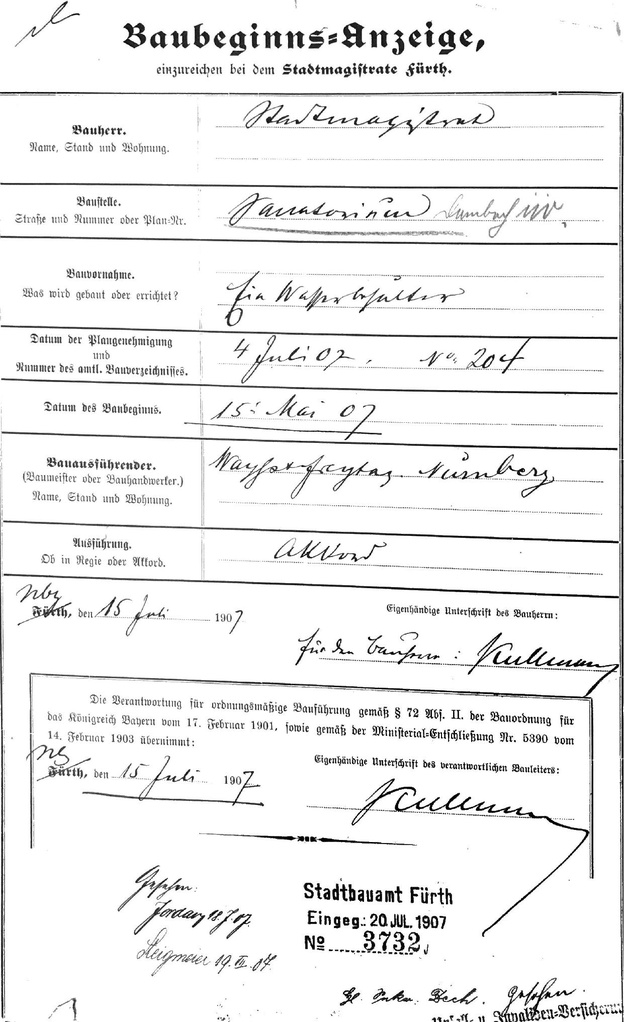 Baubeginns-Anzeige,
einzureichen bei dem Stadtmagistrate Fürth.
Bauherr.
Name, Stand und Wohnung.
Stadtmagistrat
Baustelle.
Straße und Nummer oder Plan-Nr.
Sanatorium
Bauvornahme.
Was wird gebaut oder errichtet?
Ein Wasserbehälter
Datum der Plangenehmigung
und
Nummer des amtl. Bauverzeichnisses.
4 Juli 07. No. 204
Datum des Baubeginns.
15. Mai 07
Bauausführender.
(Baumeister oder Bauhandwerker.)
Name, Stand und Wohnung.
Wayss & Freytag. Nürnberg.
Ausführung.
Ob in Regie oder Akkord.
Akkord
Nbg
Fürth, den 15 Juli 1907
Eigenhändige Unterschrift des Bauherrn:
für den Bauherrn: Kullmann
Die Verantwortung für ordnungsmäßige Bauführung gemäß § 72 Abs. II. der Bauordnung für
das Königreich Bayern vom 17. Februar 1901, sowie gemäß der Ministerial-Entschließung Nr. 5390 vom
14. Februar 1903 übernimmt:
Nbg
Fürth, den 15 Juli 1907
Eigenhändige Unterschrift des verantwortlichen Bauleiters:
Kullmann
Gesehen:
18.7.07.
19.VII.07.
Stadtbauamt Fürth
Eingeg.: 20.JUL.1907
No 3732
Gesehen.
Unfall- u. Invaliden-Versicherung